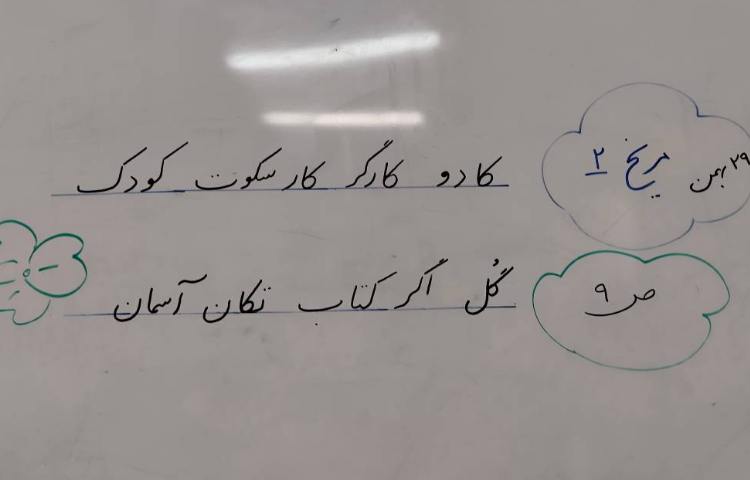 ۲۹ بهمن مریخ ۲
کادو کارگر کار سکوت کودک
ص ۹
گُل اگر کتاب تکان آسمان